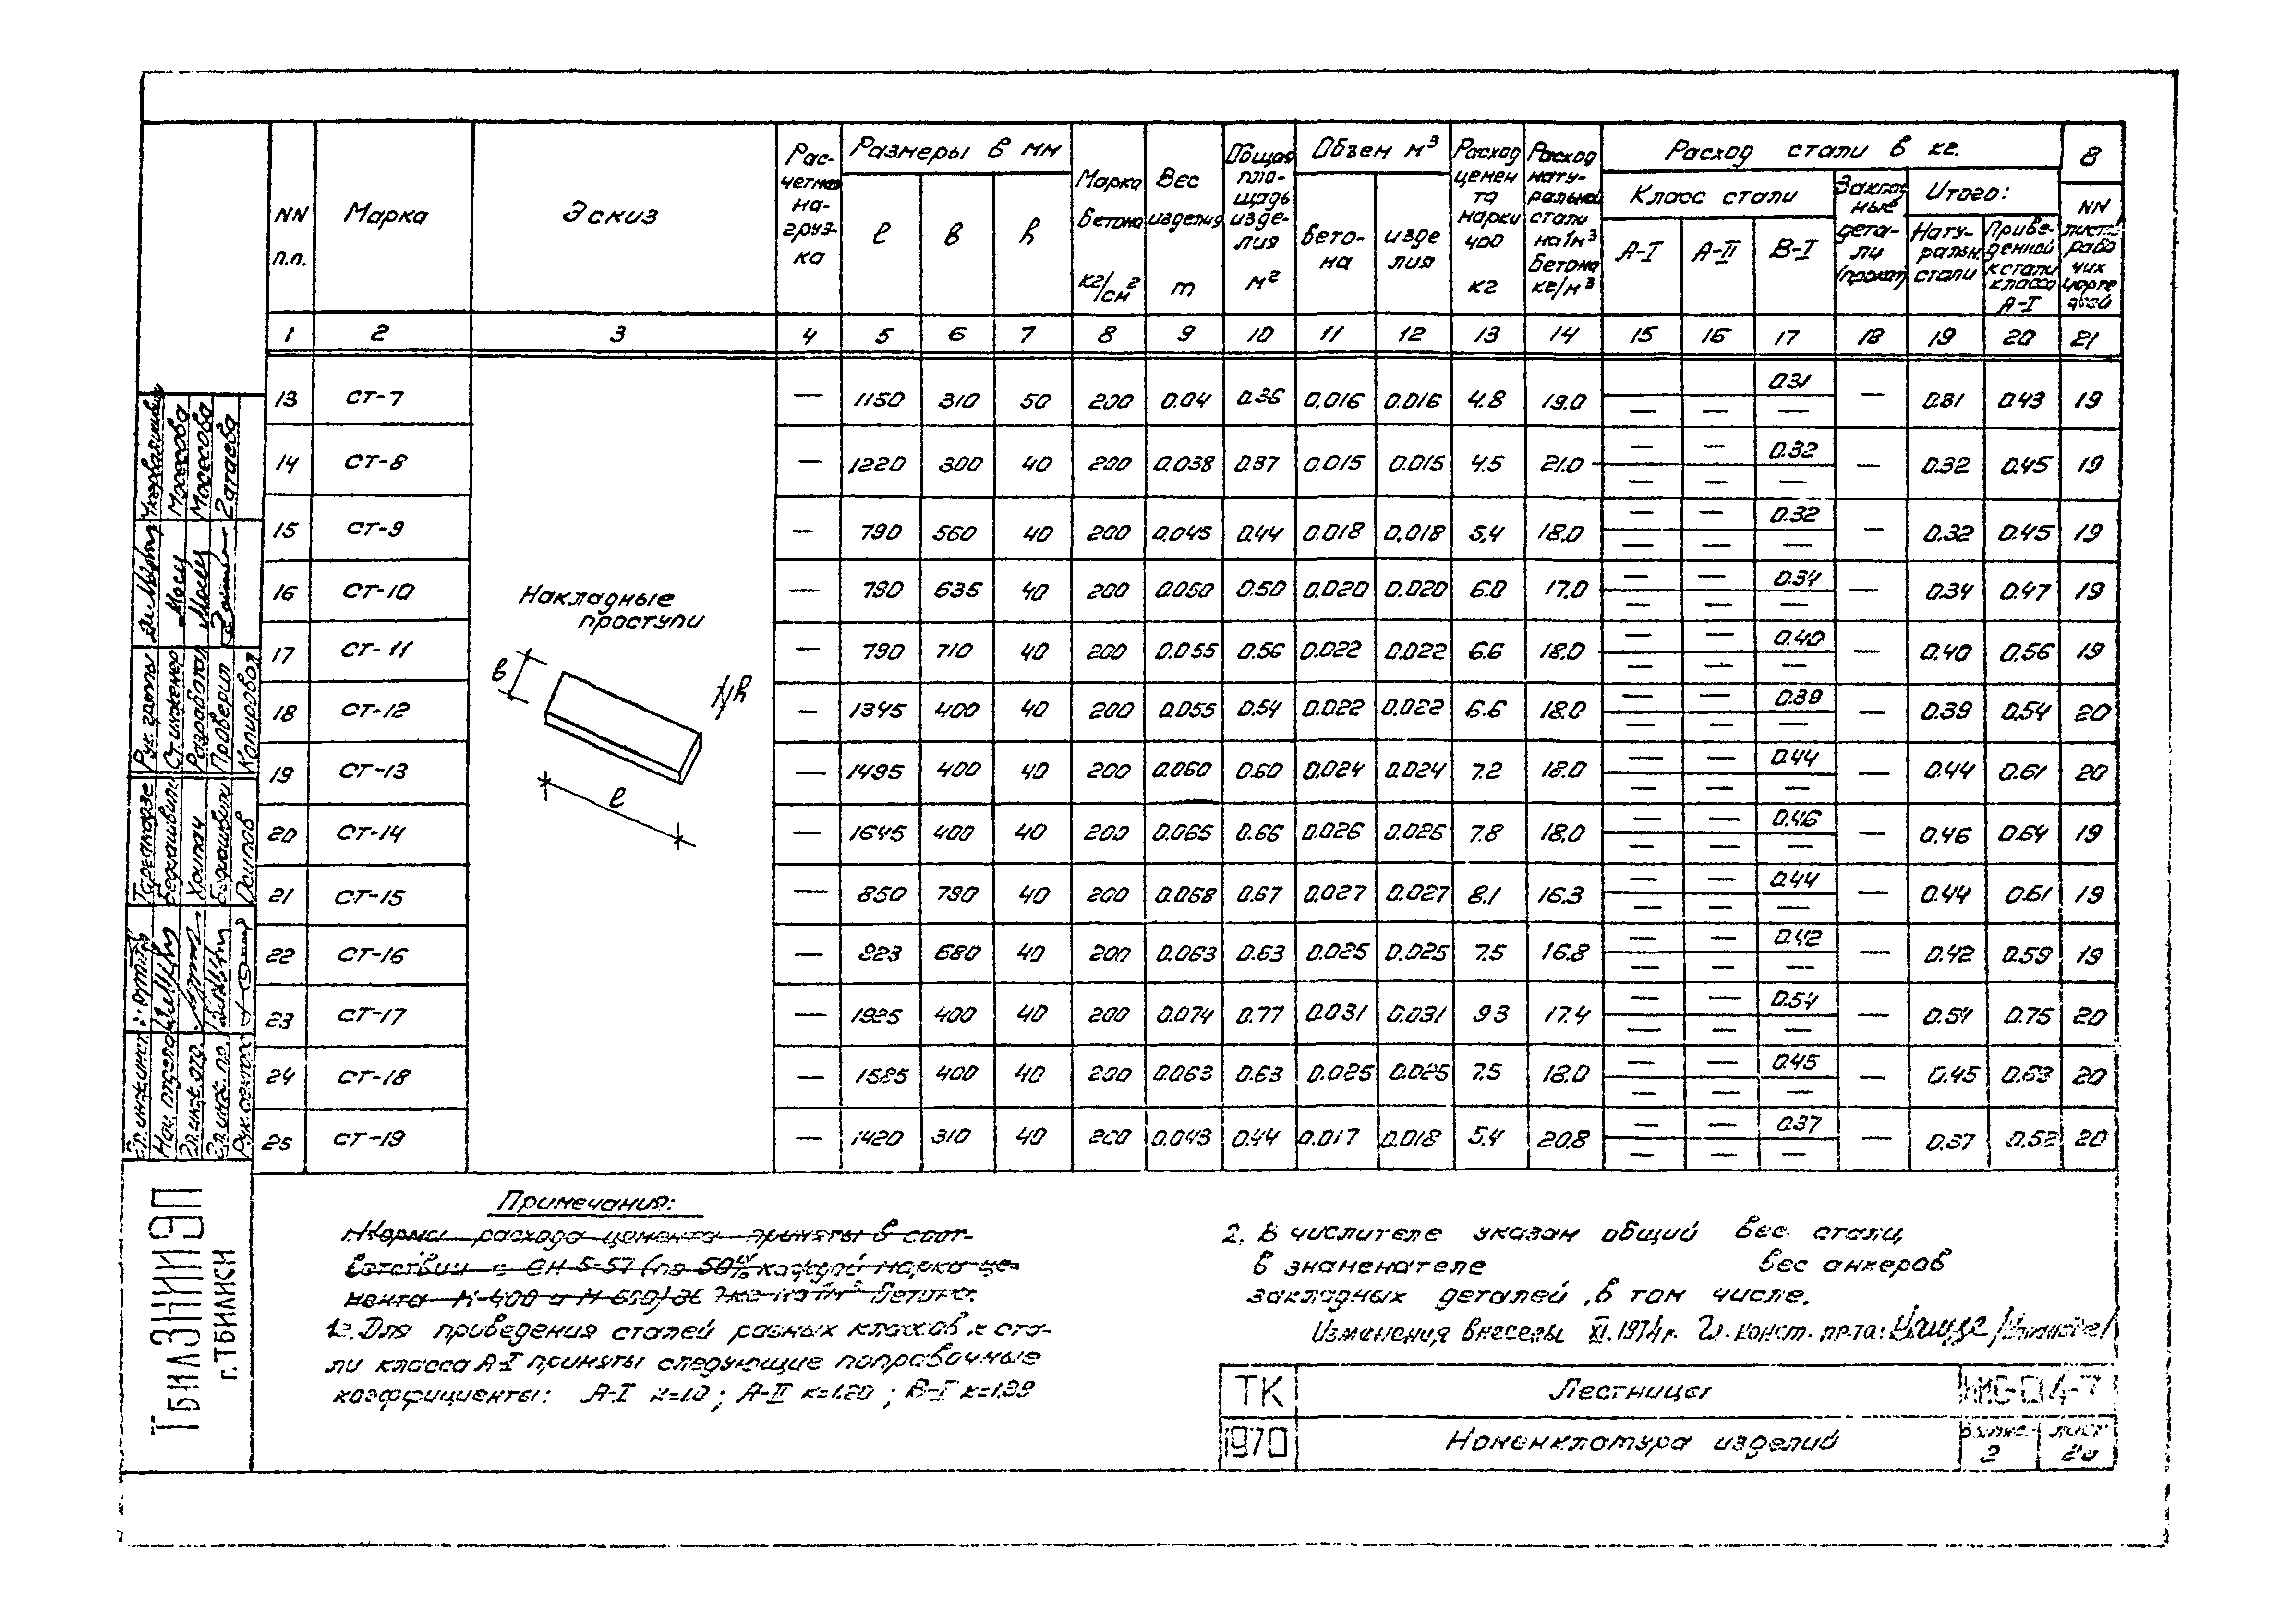 8
NN п.п. Марка Эскиз Расчетная нагрузка Размеры в мм Марка бетона кг/см² Вес изделия т Общая площадь изделия м² Объем м³ Расход цемента марки 400 кг Расход натуральной стали на 1м³ бетона кг/м³ Расход стали в кг.
l в h бетона изделия Класс стали А-I А-II В-I Закладные детали (прокат) Итого: Натуральн. стали Приведенной к стали класса А-I NN листов рабочих чертежей
1 2 3 4 5 6 7 8 9 10 11 12 13 14 15 16 17 18 19 20 21
13 СТ-7 — 1150 310 50 200 0.04 0.36 0.016 0.016 4.8 19.0 0.31 — — — — 0.31 0.43 19
14 СТ-8 — 1220 300 40 200 0.038 0.37 0.015 0.015 4.5 21.0 — — 0.32 — — — — 0.32 0.45 19
15 СТ-9 — 790 560 40 200 0.045 0.44 0.018 0.018 5,4 18.0 — — 0.32 — — — — 0.32 0.45 19
16 СТ-10 — 790 635 40 200 0.050 0.50 0.020 0.020 6.0 17.0 — — 0.34 — — — — 0.34 0.47 19
17 СТ-11 — 790 710 40 200 0.055 0.56 0.022 0.022 6.6 18.0 — — 0.40 — — — — 0.40 0.56 19
18 СТ-12 — 1345 400 40 200 0.055 0.54 0.022 0.022 6.6 18.0 — — 0.39 — — — — 0.39 0.54 20
19 СТ-13 — 1495 400 40 200 0.060 0.60 0.024 0.024 7.2 18.0 — — 0.44 — — — — 0.44 0.61 20
20 СТ-14 — 1645 400 40 200 0.065 0.66 0.026 0.026 7.8 18.0 — — 0.46 — — — — 0.46 0.64 19
21 СТ-15 — 850 790 40 200 0.068 0.67 0.027 0.027 8.1 16.3 — — 0.44 — — — — 0.44 0.61 19
22 СТ-16 — 923 680 40 200 0.063 0.63 0.025 0.025 7.5 16.8 — — 0.42 — — — — 0.42 0.59 19
23 СТ-17 — 1925 400 40 200 0.074 0.77 0.031 0.031 9 3 17.4 — — 0.54 — — — — 0.54 0.75 20
24 СТ-18 — 1585 400 40 200 0.063 0.63 0.025 0.025 7.5 18.0 — — 0.45 — — — — 0.45 0.63 20
25 СТ-19 — 1420 310 40 200 0.043 0.44 0.017 0.018 5,4 20.8 — — 0.37 — — — — 0.37 0.52 20
Накладные
проступи
в
h
l
Примечания:
1. Нормы расхода цемента приняты в соот-
ветствии с СН 5-57 (по 50% каждой марки це-
мента М-400 и М-
бетона.
1. Для приведения сталей разных классов к ста-
ли класса А-I приняты следующие поправочные
коэффициенты: А-I к=1.0 ; А-II к=1.20 ; В-I к=1.39
2. В числителе указан общий вес стали,
в знаменателе вес анкеров
закладных деталей, в том числе.
Изменения внесены XI. 1974г. Гл. конст. пр.та:
ТК Лестницы ИИ-04-7
1970 Номенклатура изделий выпуск 2 лист
ТбилЗНИИЭП
г. ТБИЛИСИ
Рук. группы
Ст. инженер Мосесова
Разработал Мосесова
Проверил Затаева
Копировал Осипов
Гл. инж. инст.
Нач. отдела
Гл. инж. отд.
Гл. инж. пр.
Рук. сектора